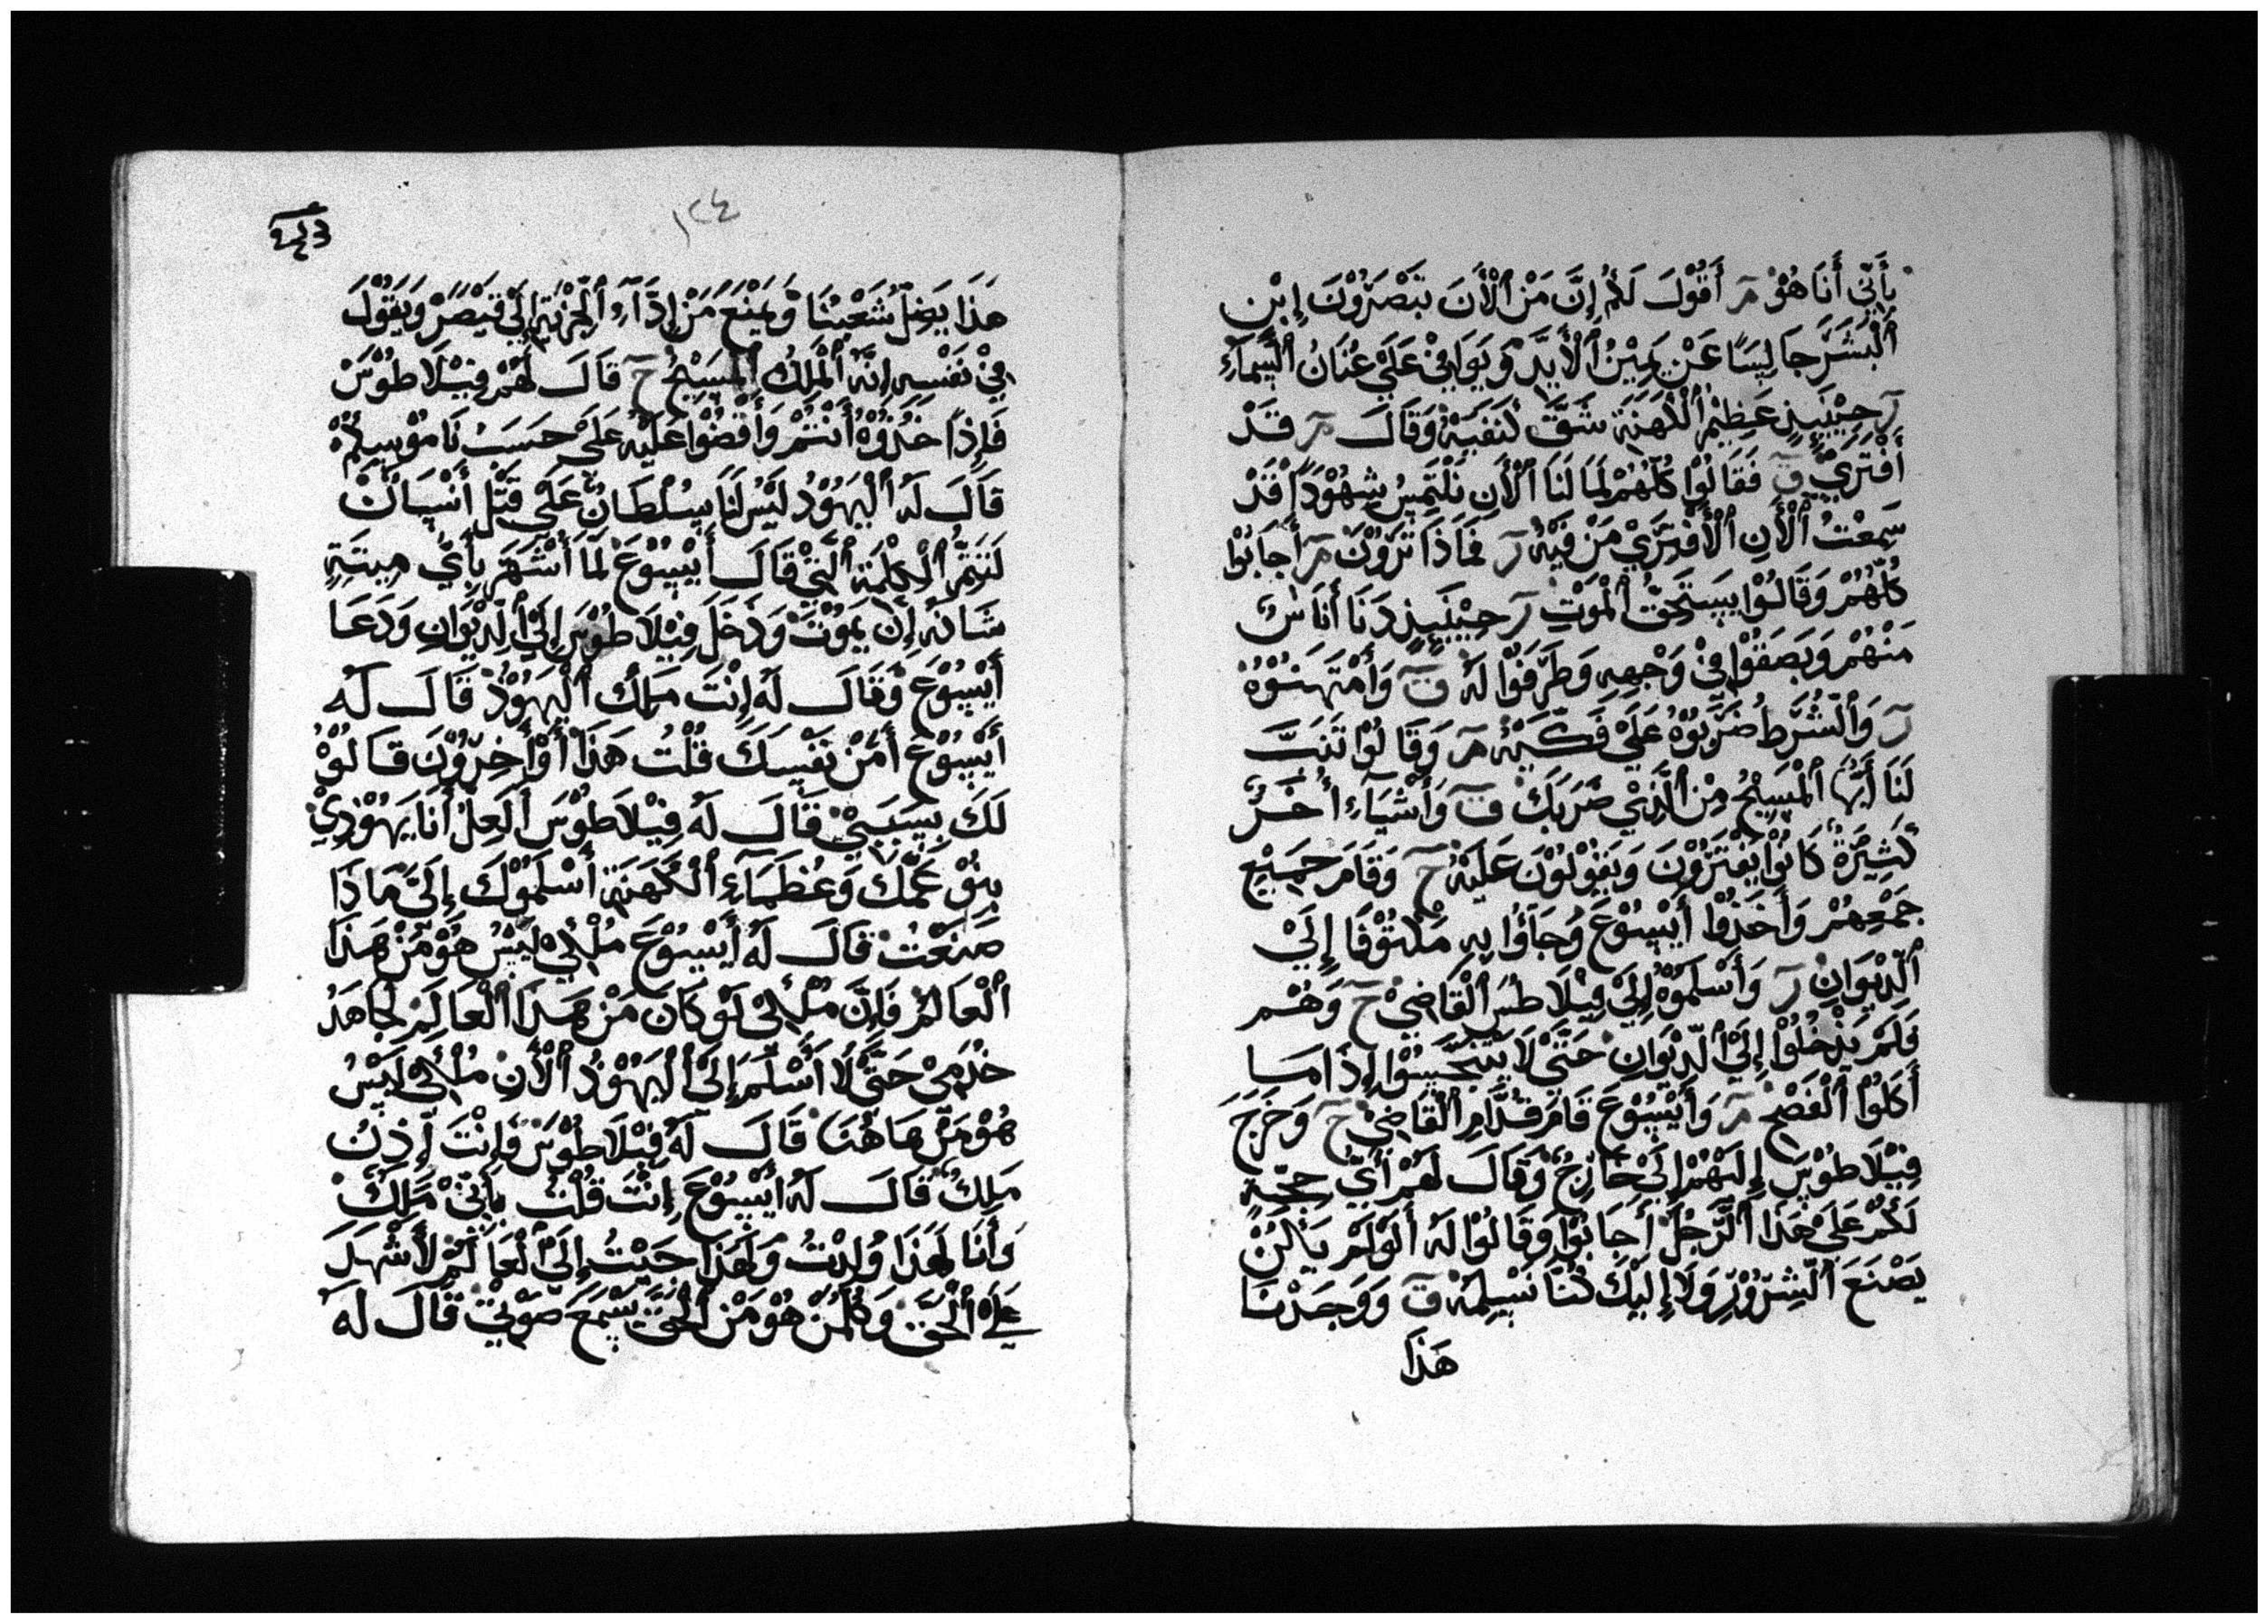 بِأَنِّي أَنَا هُوْ مر أَقُوْلَ لَكُمُ إِنَّ مَنْ الْأَنَ تَبْصَرُوْنَ إِبْنِ
الْبَشَرِ جَالِسًا عَنْ يَمِيْنِ الْأَيَدِّ وَيَوَافِيْ عَلَيْ عُنَانُ السَّمَآءِ
ر حِيْنَيِذٍ عَظِيْمُ الْكَهَنَةِ شَقَّ كَنَفَيَهُ وَقَالَ مر قَدْ
أَفْتَرَيْ ق فَقَالُوْا كُلُّهُمْ لِمَا لَنَا الْأَنِ نَلْتَمِسُ شِهُوْدًا قَدْ
سَمِعْتُ الْأَنِ الْأَفْتِرَيْ مَنْ فَيْهُ ر فَمَاذَا تَرَوْنَ مر أَجَابُوْا
كُلُّهُمْ وَقَالُوْا يَسْتَحِقُّ الْمَوْتِ ر حِيْنَيِذٍ دَنَا أَنَاسٌ
مَنْهُمْ وَبَصَقُوْا فِيْ وَجْهِهِ وَطَرَّفُوْا لَهُ ق وَامْتَهَنُوْهُ
ر وَالشُّرَطُ ضَرَبُوْهُ عَلَيْ فَكَّيْهُ مر وَقَالُوْا تَنَبَّ
لَنَا أَيُّهَا الْمَسِيْحُ مِنَ الَّذِيْ ضَرَبَكَ ق وَأَشْيَآءِ أُخَرُ
كَثِيْرَةُ كَانُوْا يَفْتَرُوْنَ وَيَقُوْلُوْنَ عَلَيْهُ ح وَقَامَ جَمِيْعِ
جَمْعِهِمْ وَأَخَذُوْا أَيْسُوْعَ وَجَآؤُا بِهِ مَكْتُوْفًا إِلَيْ
الدِّيْوَانِ ر وَأَسْلَمُوْهُ إِلَيْ فِيْلَاطُسَ الْقَاضِيْ ح وَهُمْ
فَلَمْ يَدْخُلُوْا إِلَيْ الدِّيْوَانِ حَتَّيْ لَا يَتَنَجَّسُوْا إِذَا مَا
أَكَلُوْا الْفَصْحِ مر وَأَيْسُوْعَ قَامَ قُدَّامِ الْقَاضِيْ ح وَخَرَجَ
فِيْلَاطُوْسَ إِلَيْهُمْ إِلَيْ خَارِجُ وَقَالَ لَهُمْ أَيُّ حِجَّةٍ
لَكُمْ عَلَيْ هَذَا الرَّجُلَ أَجَابُوْا وَقَالُوْا لَهُ أَلَوْ لَمْ يَاكُنْ
يَصْنَعَ الشِّرُوْرِ وَلَا إِلَيْكَ كُنَّا نَسْلِمَهُ ق وَوَجَدْنَا
هَذَا
١٢٤
هَذَا يَضِلُّ شَعْبُنَا وَيَمْنَعَ مَنْ إِدَآءِ الْجِزْيَةِ إِلَيْ قَيْصَرْ وَيَقُوْلَ
فِيْ نَفْسِهِ إِنَّهُ الْمَلِكُ الْمَسِيْحُ ح قَالَ لَهُمْ فِيْلَاطُوْسَ
فَإِذًا خُذُوْهُ أَنْتُمْ وَأَقْضُوْا عَلَيْهُ عَلَيْ حَسَبُ نَامُوْسِكُمْ
قَالَ لَهُ الْيَهُوْدُ لَيْسُ لَنَا سُلْطَانٌ عَلَيْ قَتْلِ أَنْسَانُ
لَتَتِمُّ الْكِلْمَةِ الَّتِيْ قَالَ أَيْسُوْعَ لَمَّا أَشْهَرَ بِأَيُّ مِيتَةٍ
شَانَهُ إِنْ يَمُوْتَ وَدَخَلَ فِيْلَاطُوْسِ إِلَيْ الدِّيْوَانِ وَدَعَا
أَيْسُوْعَ وَقَالَ لَهُ إِنْتَ مَلِكَ الْيَهُوْدُ قَالَ لَهُ
أَيْسُوْعَ أَمَنْ نَفْسِكَ قُلْتُ هَذَا أَوْ أَخِرُوْنَ قَالُوْا
لَكَ بِسَبَبِيْ قَالَ لَهُ فِيْلَاطُوْسَ أَلَعِلْ أَنَا يَهُوْدِيْ
بِنُوْ عَمِّكَ وَعُظَمَآءِ الْكَهَنَةِ أَسْلَمُوْكَ إِلَيَّ مَاذَا
صَنَعْتُ قَالَ لَهُ أَيْسُوْعَ مُلْكِيْ لَيْسُ هُوْ مَنْ هَذَا
الْعَالَمُ فَإِنَّ مُلْكِيْ لَوْ كَانَ مَنْ هَذَا الْعَالَمِ لَجَاهَدُ
خَدَمِيْ حَتَّيْ لَا أُسْلَمَ إِلَيْ الْيَهُوْدُ الْأَنِ مُلْكِيْ لَيْسُ
هُوْ مَنْ هَاهُنَا قَالَ لَهُ فِيْلَاطُوْسَ فَإِنْتَ إِذِنُ
مَلِكٌ قَالَ لَهُ أَيْسُوْعَ إِنْتَ قُلْتُ بِأَنِّيْ مَلِكٌ
وَأَنَا لِهَذَا وُلِدْتُ وَلِهَذَا جَيْتُ إِلَيْ الْعَالَمُ لَأَشْهَدَ
عَلَيْ الْحَقِّ وَكُلِّمَنْ هُوْ مَنْ الْحَقِّ يَسْمَعَ صَوْتِيْ قَالَ لَهُ